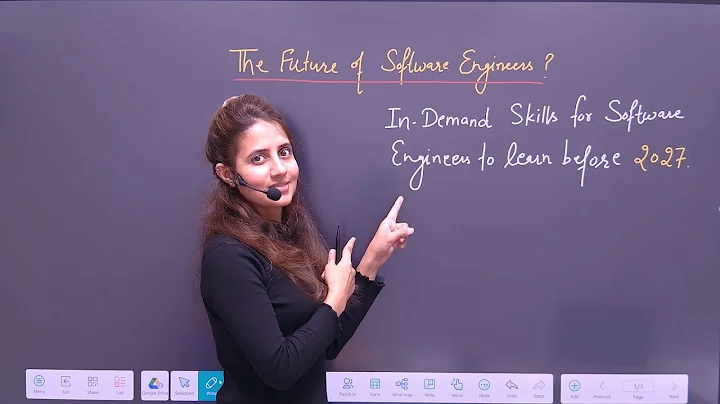 The Future of Software Engineers?
In-Demand Skills for Software
Engineers to learn before 2027.
Menu
Exit
Subboard
List
Google Drive
Selection
Write
Partition
Form
Mind map
Note
More
Undo
Redo
Add
Previous
1/1
Page
Next